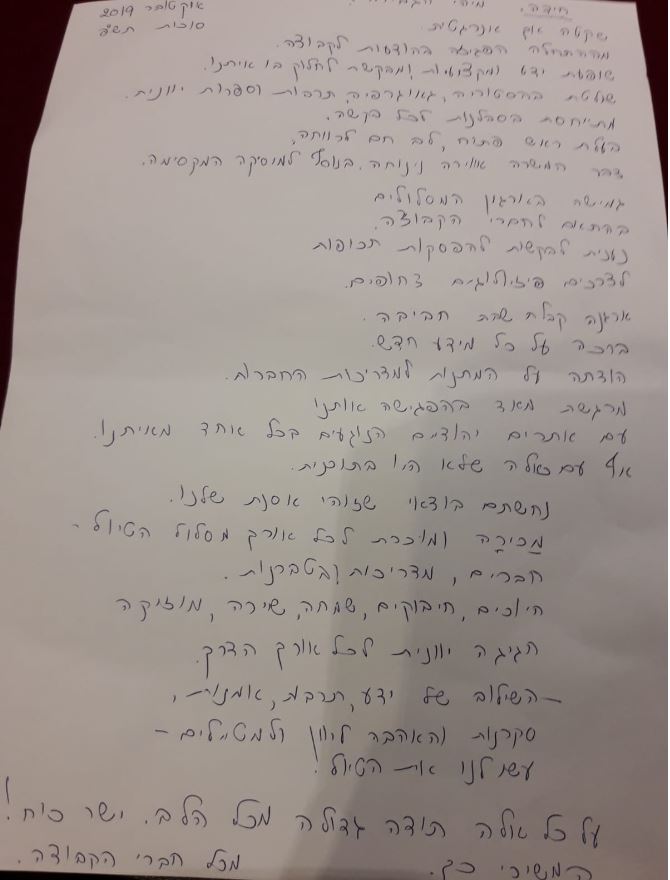 חידה. מיהי אוקטובר 2019
שקטה אך אנרגטית. סוכות תש"פ
מההתחלה הפגיזה בהודעות לקבוצה.
שופעת ידע ומקצועיות ומבקשת לחלוק בו איתנו.
שולטת בהסטוריה, גאוגרפיה, תרבות וספרות יוונית.
מתייחסת בסבלנות לכל בקשה.
בעלת ראש פתוח, לב חם לרווחה,
דבר המשרה אווירה נינוחה. בנוסף למוסיקה המקסימה.
גמישה בארגון המסלולים
בהתאם לחברי הקבוצה.
נענית לבקשות להפסקות תכופות
לצרכים פיזיולוגים דחופים.
ארגנה קבלת שבת חביבה.
ברכה על כל מידע חדש.
הודתה על המתנות למדריכות החברות.
מרגשת מאוד בהפגישה אותנו
עם אתרים יהודים הנוגעים בכל אחד מאיתנו.
אף עם כאלה שלא היו בתוכנית.
נחשתם בודאי שזוהי אסנת שלנו.
מַכּירָה ומוכרת לכל אורך מסלול הטיול -
חברים, מדריכות ובטברנות.
חיוכים, חיבוקים, שמחה, שירה, מוזיקה
חגיגה יוונית לכל אורך הדרך.
- השילוב של ידע, תרבות, אומנות,
סקרנות והאהבה ליוון ולמטיילים -
עשו לנו את הטיול!
על כל אלה תודה גדולה מכל הלב. ישר כוח!
המשיכי כך. מכל חברי הקבוצה.